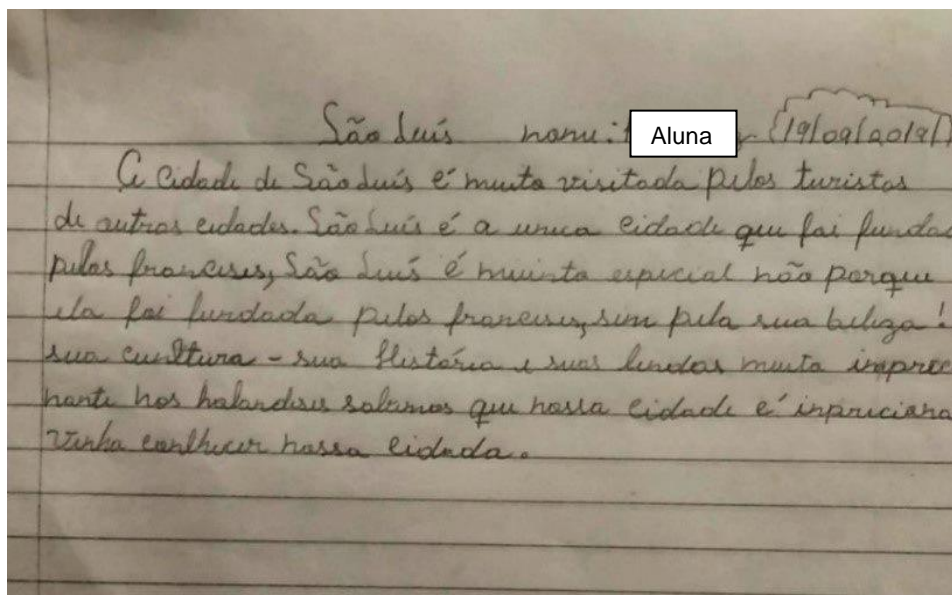 São Luís nome: Aluna (19/09/2019)
A cidade de São Luís é muita visitada pelos turistas
de outras cidades. São Luís é a unica cidade que foi fundad
pelos franceses, São Luís é muinta especial não porque
ela foi fundada pelos franceses, sim pela sua beliza!
sua cunltura - sua História e suas lendas muita impree
nante nos holandeses sabemos que nossa cidade é inpriciona
Venha conlhecer nossa cidada.